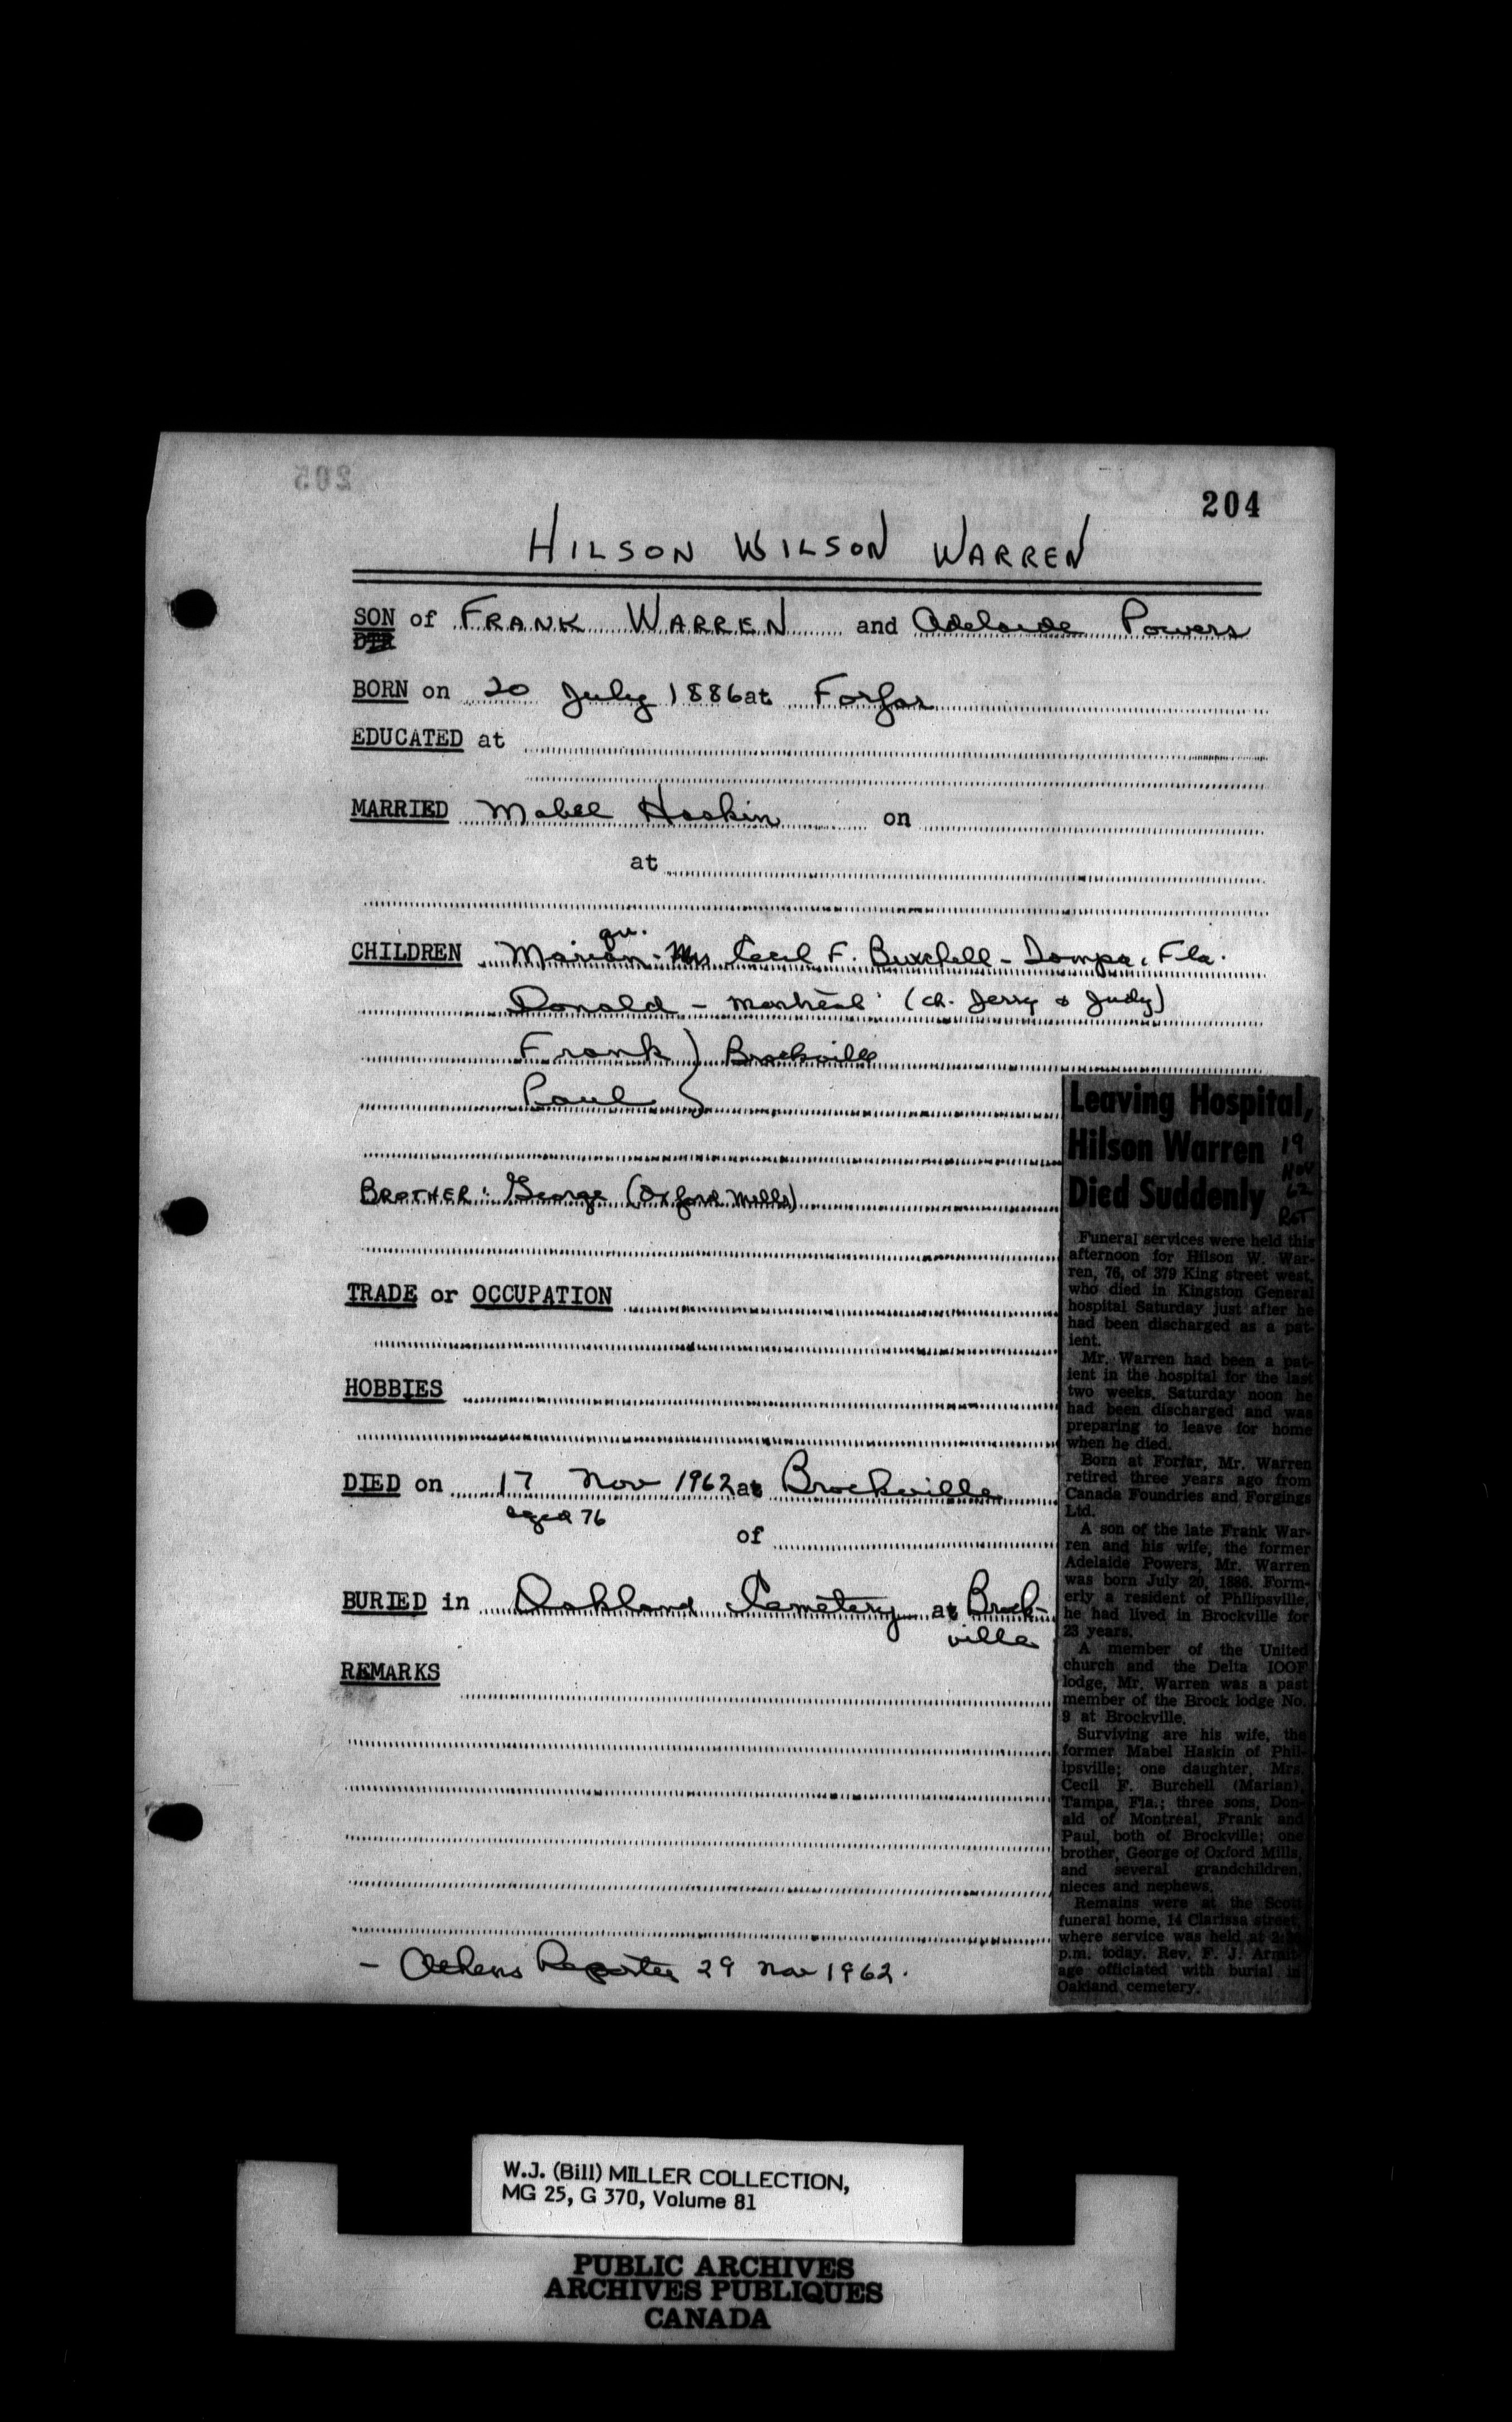 205
204
HILSON WILSON WARREN
SON of FRANK WARREN and Adelaide Powers
DTR
BORN on 20 July 1886 at Forfar
EDUCATED at
MARRIED Mabel Haskin on
at
CHILDREN Marion - Mrs Cecil F. Burchell - Tampa, Fla.
Donald - Montreal (ch. Jerry & Judy)
Frank ) Brockville
Paul )
BROTHER: George (Oxford Mills)
TRADE or OCCUPATION
HOBBIES
DIED on 17 Nov 1962 at Brockville
aged 76
of
BURIED in Oakland Cemetery at Brock-
ville
REMARKS
- Athens Reporter 29 Nov 1962.
Leaving Hospital,
Hilson Warren
Died Suddenly
19
Nov
62
R&T
Funeral services were held this
afternoon for Hilson W. War-
ren, 76, of 379 King street west,
who died in Kingston General
hospital Saturday just after he
had been discharged as a pat-
ient.
Mr. Warren had been a pat-
ient in the hospital for the last
two weeks. Saturday noon he
had been discharged and was
preparing to leave for home
when he died.
Born at Forfar, Mr. Warren
retired three years ago from
Canada Foundries and Forgings
Ltd.
A son of the late Frank War-
ren and his wife, the former
Adelaide Powers, Mr. Warren
was born July 20, 1886. Form-
erly a resident of Philipsville,
he had lived in Brockville for
23 years.
A member of the United
church and the Delta IOOF
lodge, Mr. Warren was a past
member of the Brock lodge No.
9 at Brockville.
Surviving are his wife, the
former Mabel Haskin of Phil-
ipsville; one daughter, Mrs.
Cecil F. Burchell (Marian),
Tampa, Fla.; three sons, Don-
ald of Montreal, Frank and
Paul, both of Brockville; one
brother, George of Oxford Mills,
and several grandchildren,
nieces and nephews.
Remains were at the Scott
funeral home, 14 Clarissa street,
where service was held at
p.m. today. Rev. F. J. Armit-
age officiated with burial in
Oakland cemetery.
W.J. (Bill) MILLER COLLECTION,
MG 25, G 370, Volume 81
PUBLIC ARCHIVES
ARCHIVES PUBLIQUES
CANADA